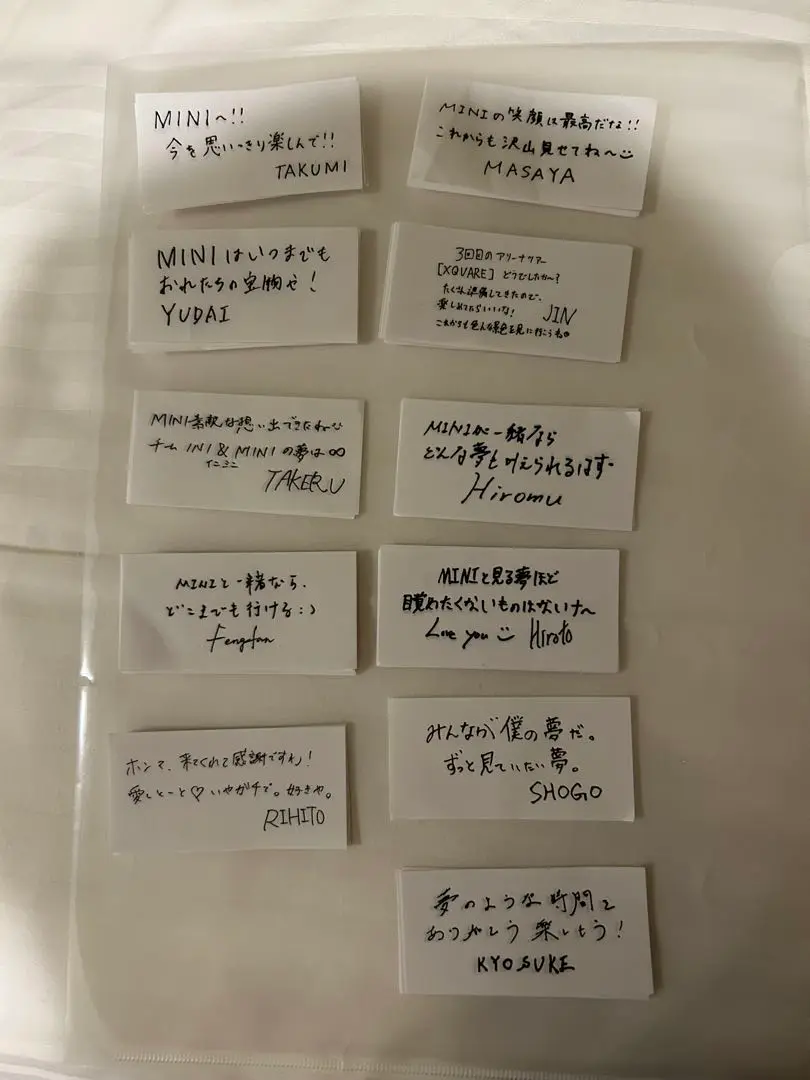 MINIへ!!
今を思いっきり楽しんで!!
TAKUMI
MINIの笑顔は最高だな!!
これからも沢山見せてね〜
MASAYA
MINIはいつまでも
おれたちの宝物や!
YUDAI
3回目のアリーナツアー
[XQUARE] どうでしたか〜?
たくさん準備してきたので、
楽しめてたらいいな!
JIN
これからも色んな景色を見に行こうも
MINI素敵な想い出できたね〜
チーム INI & MINI の夢は∞
イニ ミニ
TAKERU
MINIが一緒なら
どんな夢も叶えられるはず
Hiromu
MINIと一緒なら、
どこまでも行ける:)
Fengfan
MINIと見る夢ほど
目覚めたくないものはないナ〜
Love you Hiroto
ホンマ、来てくれて感謝ですわ!
愛しとーと♡いやガチで。好きや。
RIHITO
みんなが僕の夢だ。
ずっと見ていたい夢。
SHOGO
夢のような時間を
ありがとう 楽しもう!
KYOSUKE